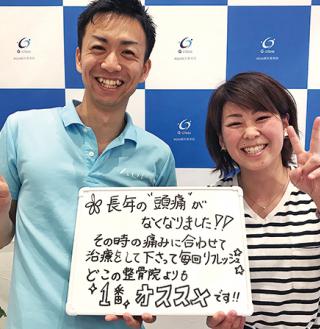 G-class
G-class
G-class
✿長年の"頭痛"が
なくなりました!!
その時の痛みに合わせて
治療をして下さって毎回リフレッシュ
どこの整骨院よりも
1番オススメです!!